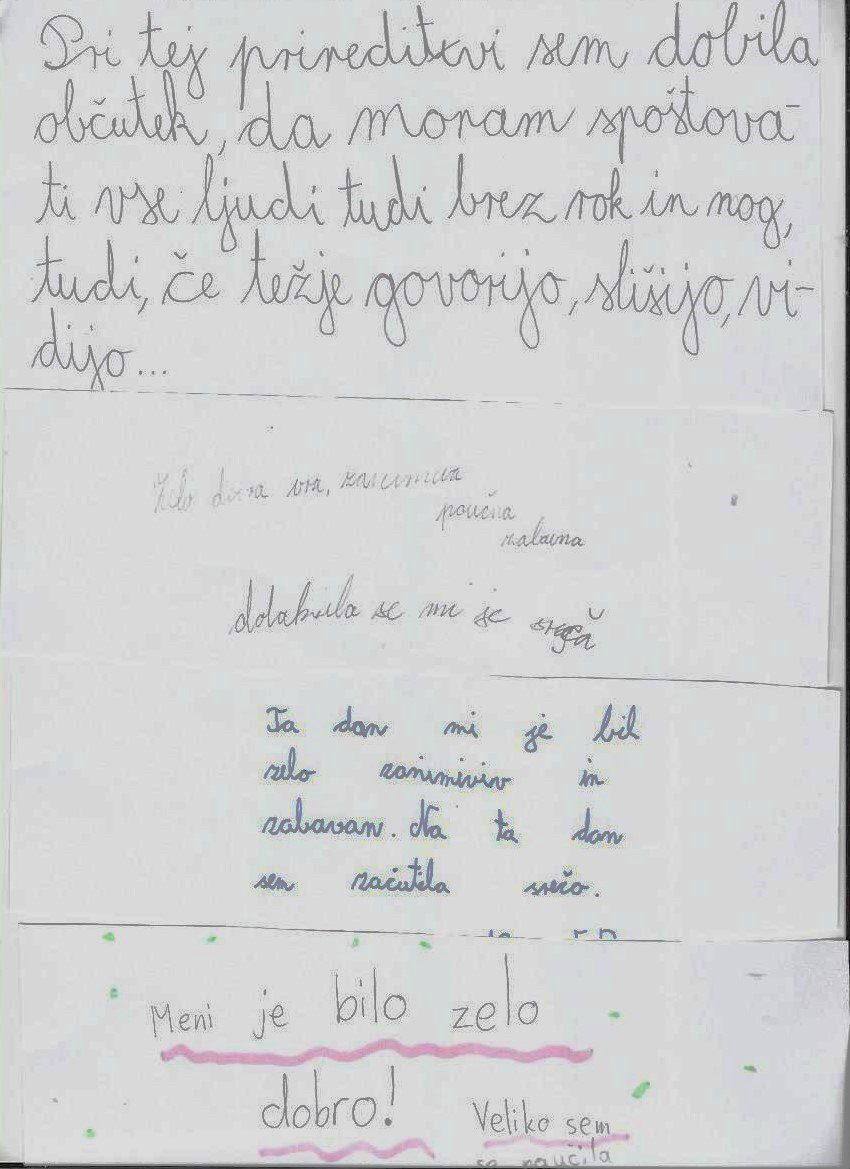 Pri tej prireditvi sem dobila
občutek, da moram spoštova-
ti vse ljudi tudi brez rok in nog,
tudi, če težje govorijo, slišijo, vi-
dijo...
Zelo ura,
poučna
zabavna
se mi je
Ta dan mi je bil
zelo zanimiviv in
zabavan. Na ta dan
sem začutila srečo.
Meni je bilo zelo
dobro!
Veliko sem
se naučila